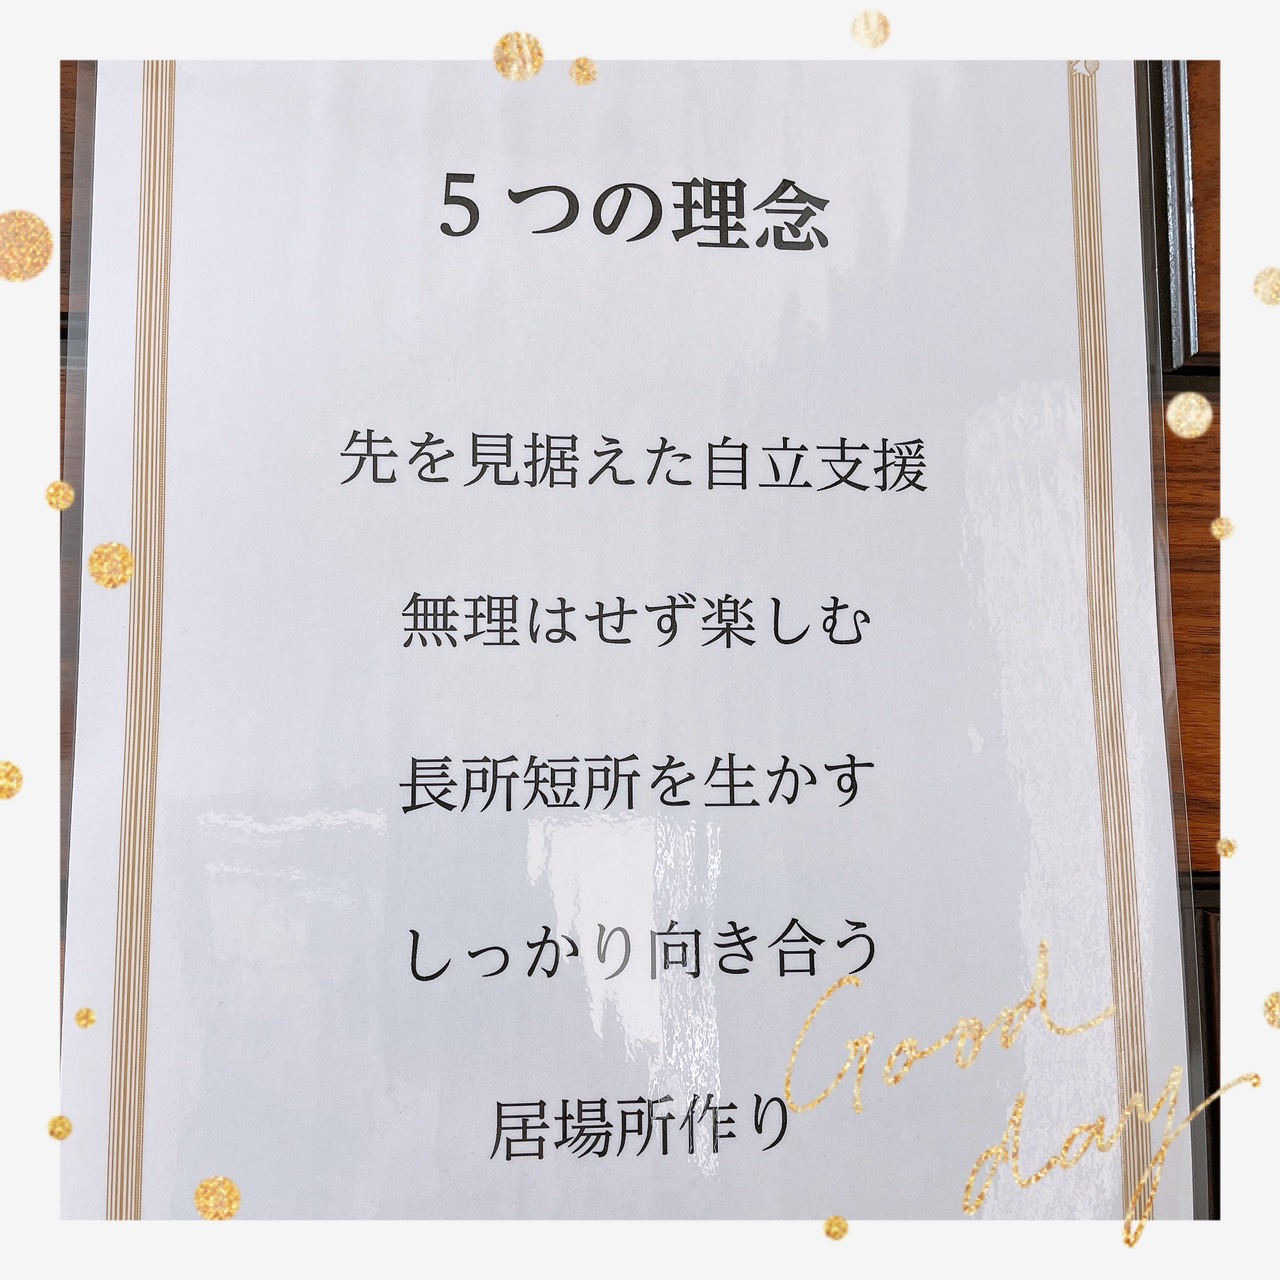 ５つの理念
先を見据えた自立支援
無理はせず楽しむ
長所短所を生かす
しっかり向き合う
居場所作り
Good
day